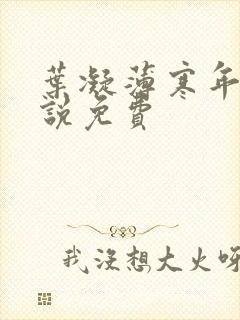 葉凝薄寒年
說免費
我沒想大火呀